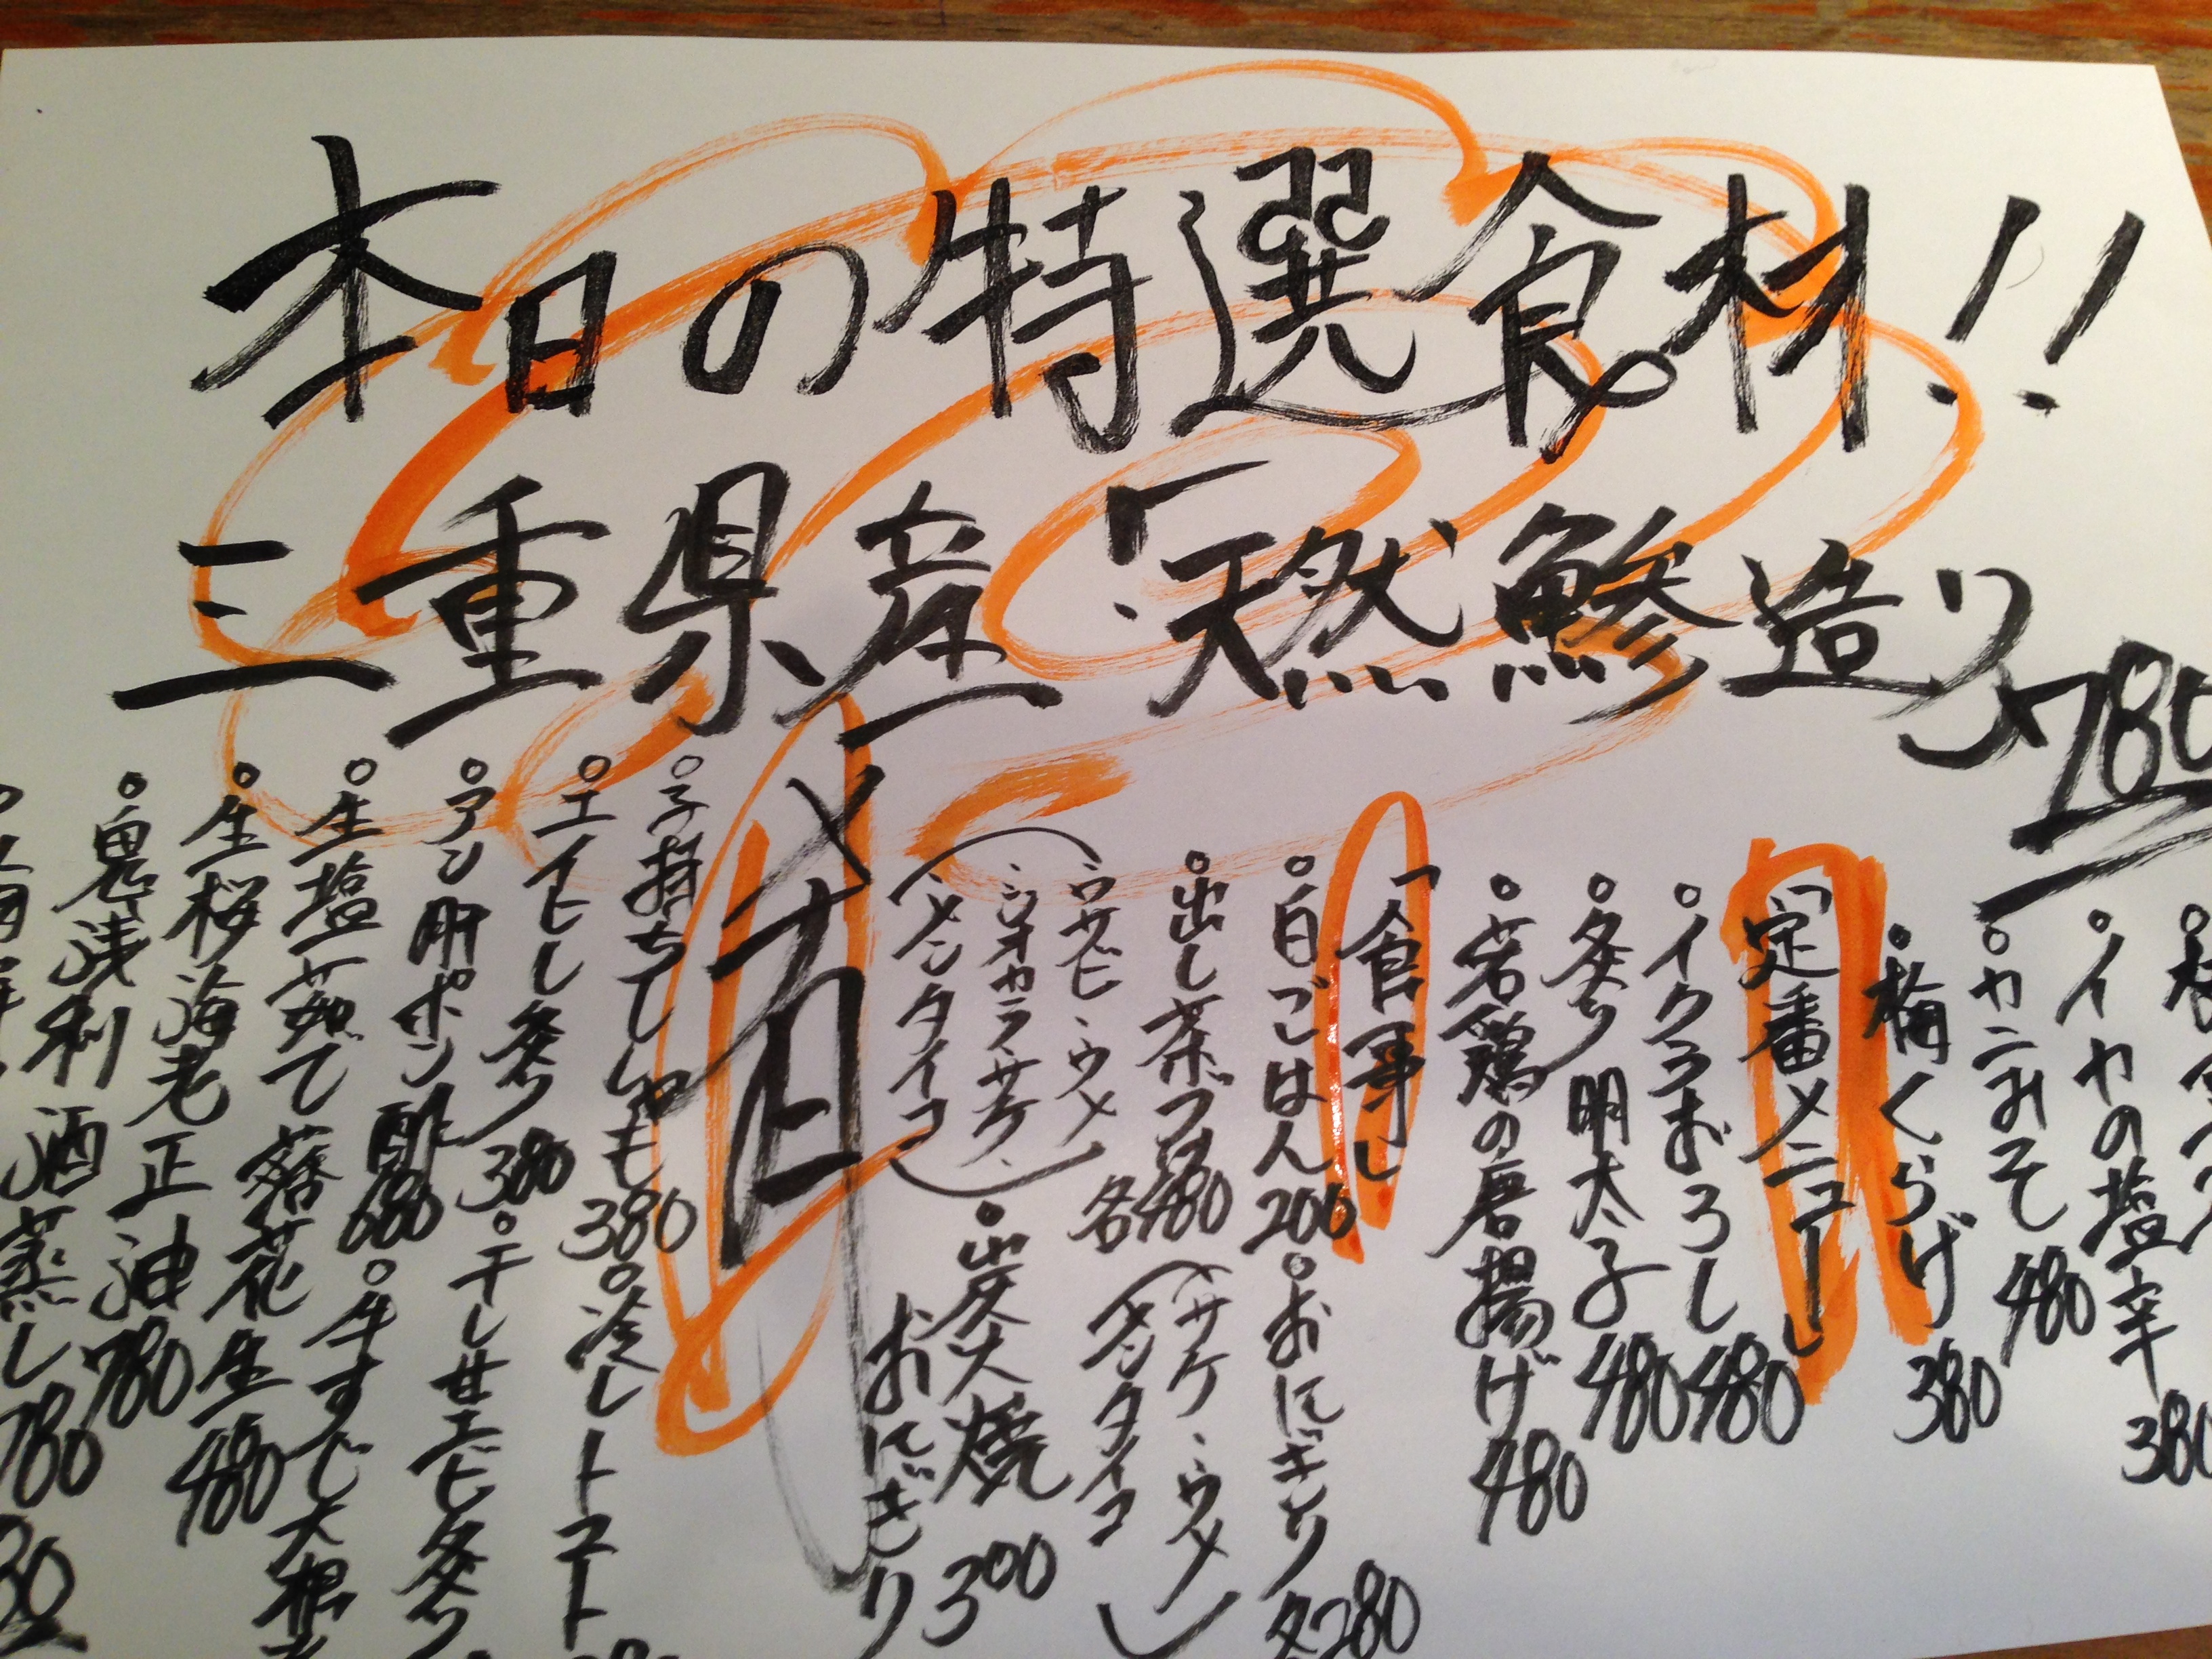 本日の特選食材!!
三重県産「天然鰺造り 780
イカの塩辛 380
カニみそ 480
梅くらげ 380
「定番メニュー」
イクラおろし 480
炙り明太子 480
若鶏の唐揚げ 480
「食事」
白ごはん 200
おにぎり 各280
(サケ、ウメ
メンタイコ)
出し茶づけ 各480
(ワサビ、ウメ
シオカラ、サケ、
メンタイコ)
炭火焼
おにぎり 300
肴
子持ちししゃも 380
冷しトマト
エイヒレ炙り 380
干し甘エビ炙り
アン肝ポン酢 680
牛すじ大根
生塩茹で落花生 480
生桜海老正油 780
鬼浅利酒蒸し 780